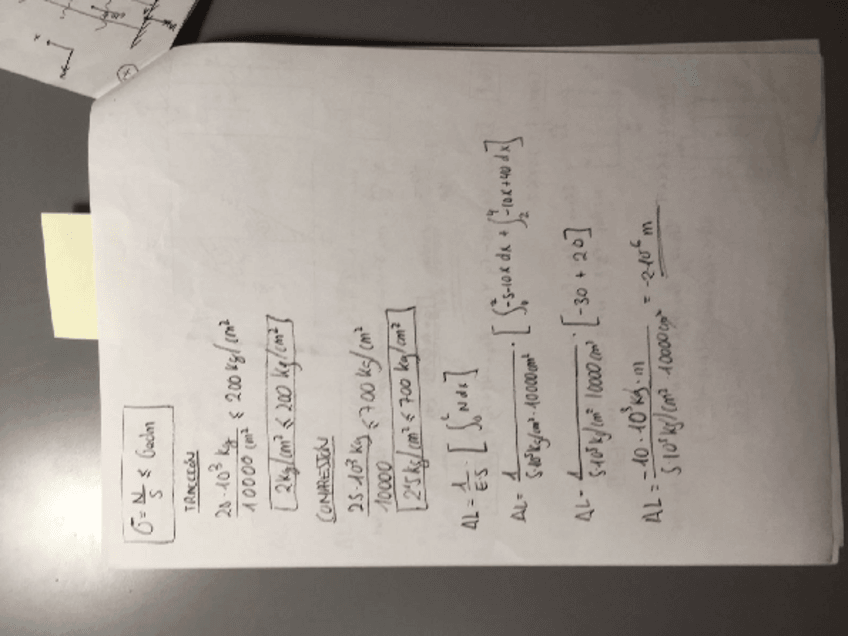 σ = N/S ≤ σadm
TRACCIÓN
20·10³ kg / 10000 cm² ≤ 200 kg/cm²
2 kg/cm² ≤ 200 kg/cm²
COMPRESIÓN
25·10³ kg / 10000 ≤ 700 kg/cm²
2'5 kg/cm² ≤ 700 kg/cm²
ΔL = 1/E·S · [∫₀ᴸ N dx]
ΔL = 1 / 5·10⁵ kg/cm² · 10000 cm² · [∫₀² -5-10x dx + ∫₂⁴ -10x+40 dx]
ΔL = 1 / 5·10⁵ kg/cm² 10000 cm² · [-30 + 20]
ΔL = -10·10³ kg·m / 5·10⁵ kg/cm² · 10000 cm² = -2·10⁻⁶ m